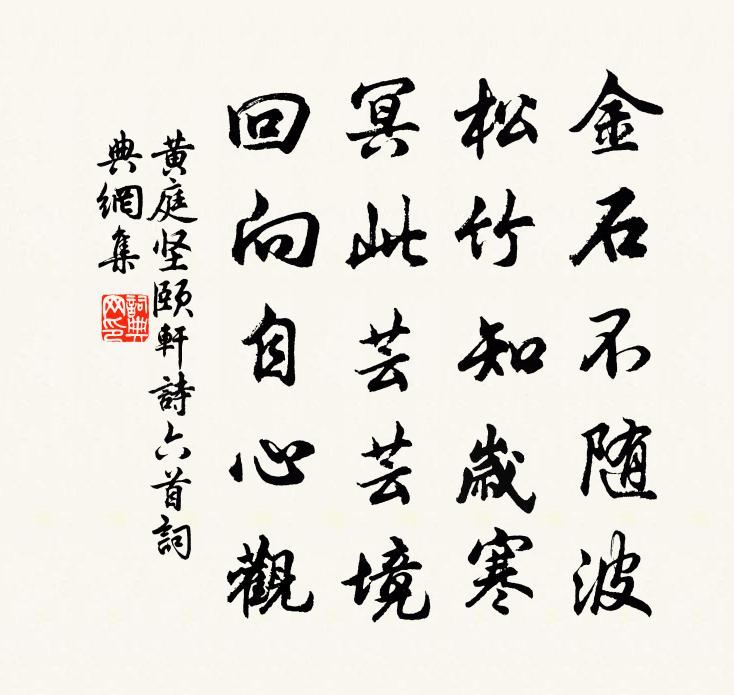 金石不随波
松竹知歲寒
冥此芸芸境
回向自心觀
黄庭坚頤軒詩六首詞
典網集
詞典网印